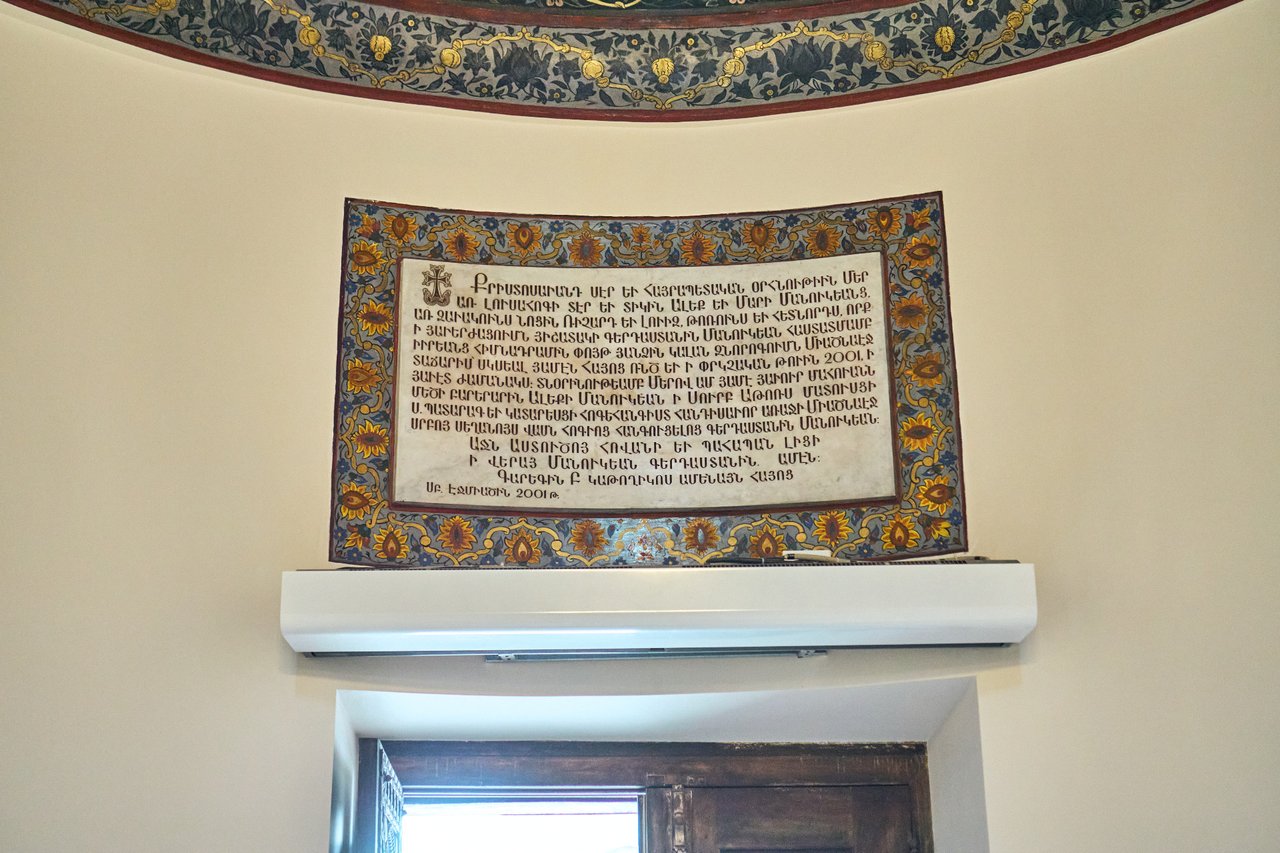 Քրիստոսաւանդ սէր եւ Հայրապետական օրհնութիւն Մեր
առ Լուսահոգի տէր եւ տիկին Ալեք եւ Մարի Մանուկեանց,
առ զաւակունս նոցին Ռիչարդ եւ Լուիզ, թոռունս եւ հետնորդս, որք
ի յաւերժացումն յիշատակի գերդաստանին Մանուկեան հաստատմամբ
իւրեանց հիմնադրամին փոյթ յանձին կալան զնորոգումն Միածնաէջ
տաճարիմ սկսեալ յամէն Հայոց ՌՆԾ եւ ի փրկչական թուին 2001. ի
յաւէտ ժամանակս: Տնօրինութեամբ Մերով ամ յամէ յաւուր մահուանն
մեծի բարերարին Ալեքի Մանուկեան ի Սուրբ Աթոռս մատուսցի
Ս. Պատարագ եւ կատարեսցի հոգեհանգիստ հանդիսաւոր առաջի Միածնաէջ
սրբոյ սեղանոյս վասն հոգւոց հանգուցելոց գերդաստանին Մանուկեան:
Աջն Աստուծոյ հովանի եւ պահապան լիցի
ի վերայ Մանուկեան գերդաստանին. ամէն:
Գարեգին Բ Կաթողիկոս Ամենայն Հայոց
Սբ. Էջմիածին 2001 թ.